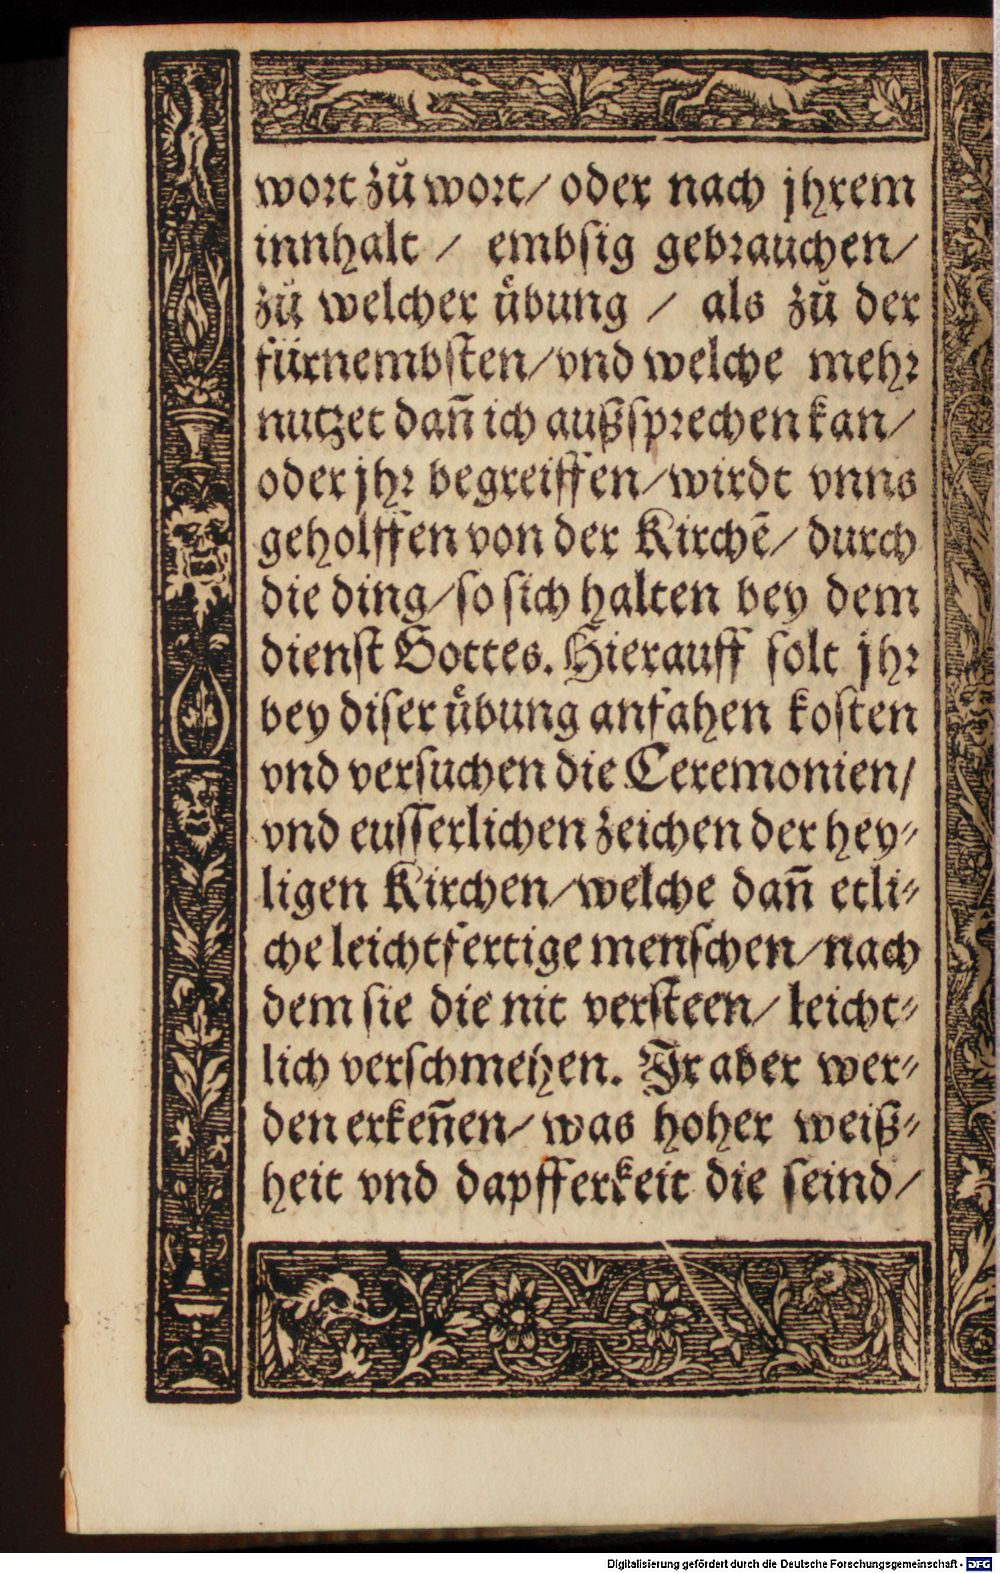 wort zů wort/ oder nach jhrem
innhalt / embsig gebrauchen/
zů welcher uͤbung / als zů der
fürnembsten/vnd welche mehr
nutzet dañ ich außsprechen kan/
oder jhr begreiffen/wirdt vnns
geholffen von der Kirchē/ durch
die ding/so sich halten bey dem
dienst Gottes. Hierauff solt jhr
bey diser uͤbung anfahen kosten
vnd versuchen die Ceremonien/
vnd eusserlichen zeichen der hey⸗
ligen Kirchen/welche dañ etli⸗
che leichtfertige menschen/nach
dem sie die nit versteen/ leicht⸗
lich verschmehen. Ir aber wer⸗
den erkeñen/ was hoher weiß⸗
heit vnd dapfferkeit die seind/
Digitalisierung gefördert durch die Deutsche Forschungsgemeinschaft - DFG